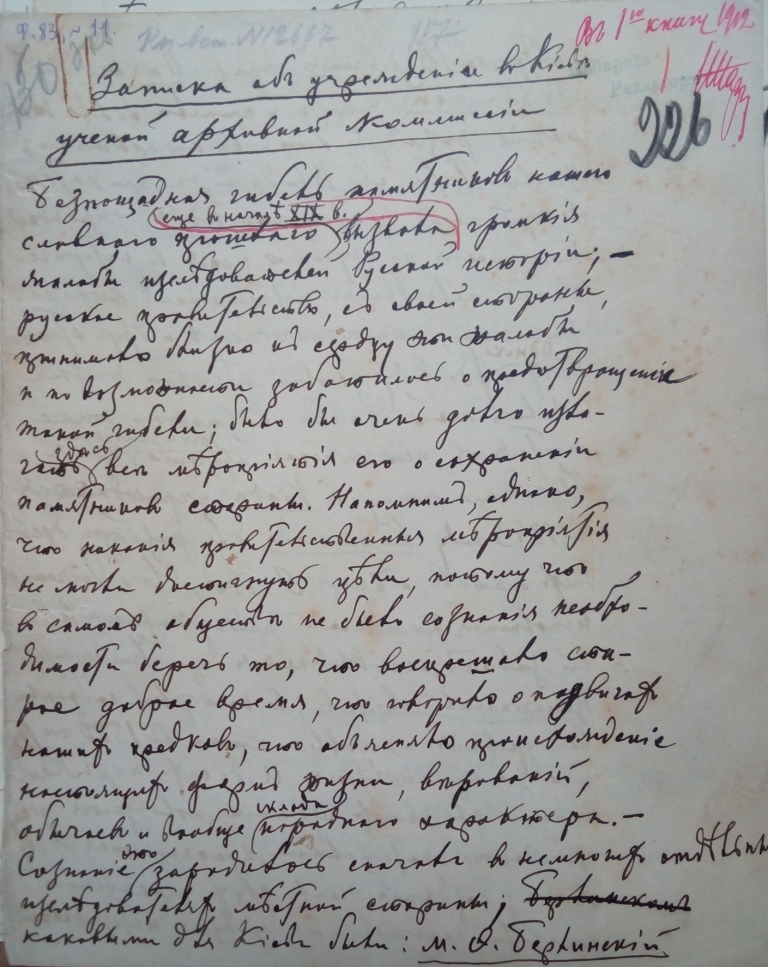 Ф. 83, № 11.
Кн. вст. № 12667 117
Въ 1ую книгу 1912
226
Записка объ учрежденіи въ Кіевѣ
ученой архивной Коммиссіи
Безпощадная гибель памятниковъ нашего
еще въ началѣ XIX в.
славнаго прошлаго вызвала громкія
жалобы изслѣдователей Русской исторіи; —
русское правительство, съ своей стороны,
принимало близко къ сердцу эти жалобы
и по возможности заботилось о предотвращеніи
такой гибели; было бы очень долго изла-
здѣсь
гать всѣ мѣропріятія его о сохраненіи
памятниковъ старины. Напомнимъ, однако,
что никакія правительственныя мѣропріятія
не могли достигнуть цѣли, потому что
въ самомъ обществѣ не было сознанія необхо-
димости беречь то, что воскрешало ста-
рое доброе время, что говорило о подвигахъ
нашихъ предковъ, что объясняло происхожденіе
настоящихъ формъ жизни, вѣрованій,
склада
обычаевъ и вообще народнаго характера. —
это
Сознаніе зародилось сначала въ немногихъ отдѣльн
изслѣдователяхъ мѣстной старины;
каковыми для Кіева были: М. Ѳ. Берлинскій